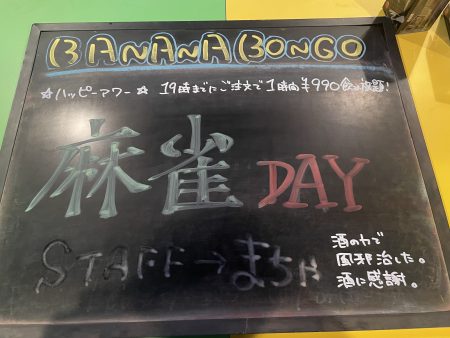 BANANA BONGO
☆ハッピーアワー☆ 19時までにご注文で1時間¥990飲み放題!
麻雀DAY
STAFF→まちβ
酒の力で
風邪治した。
酒に感謝。